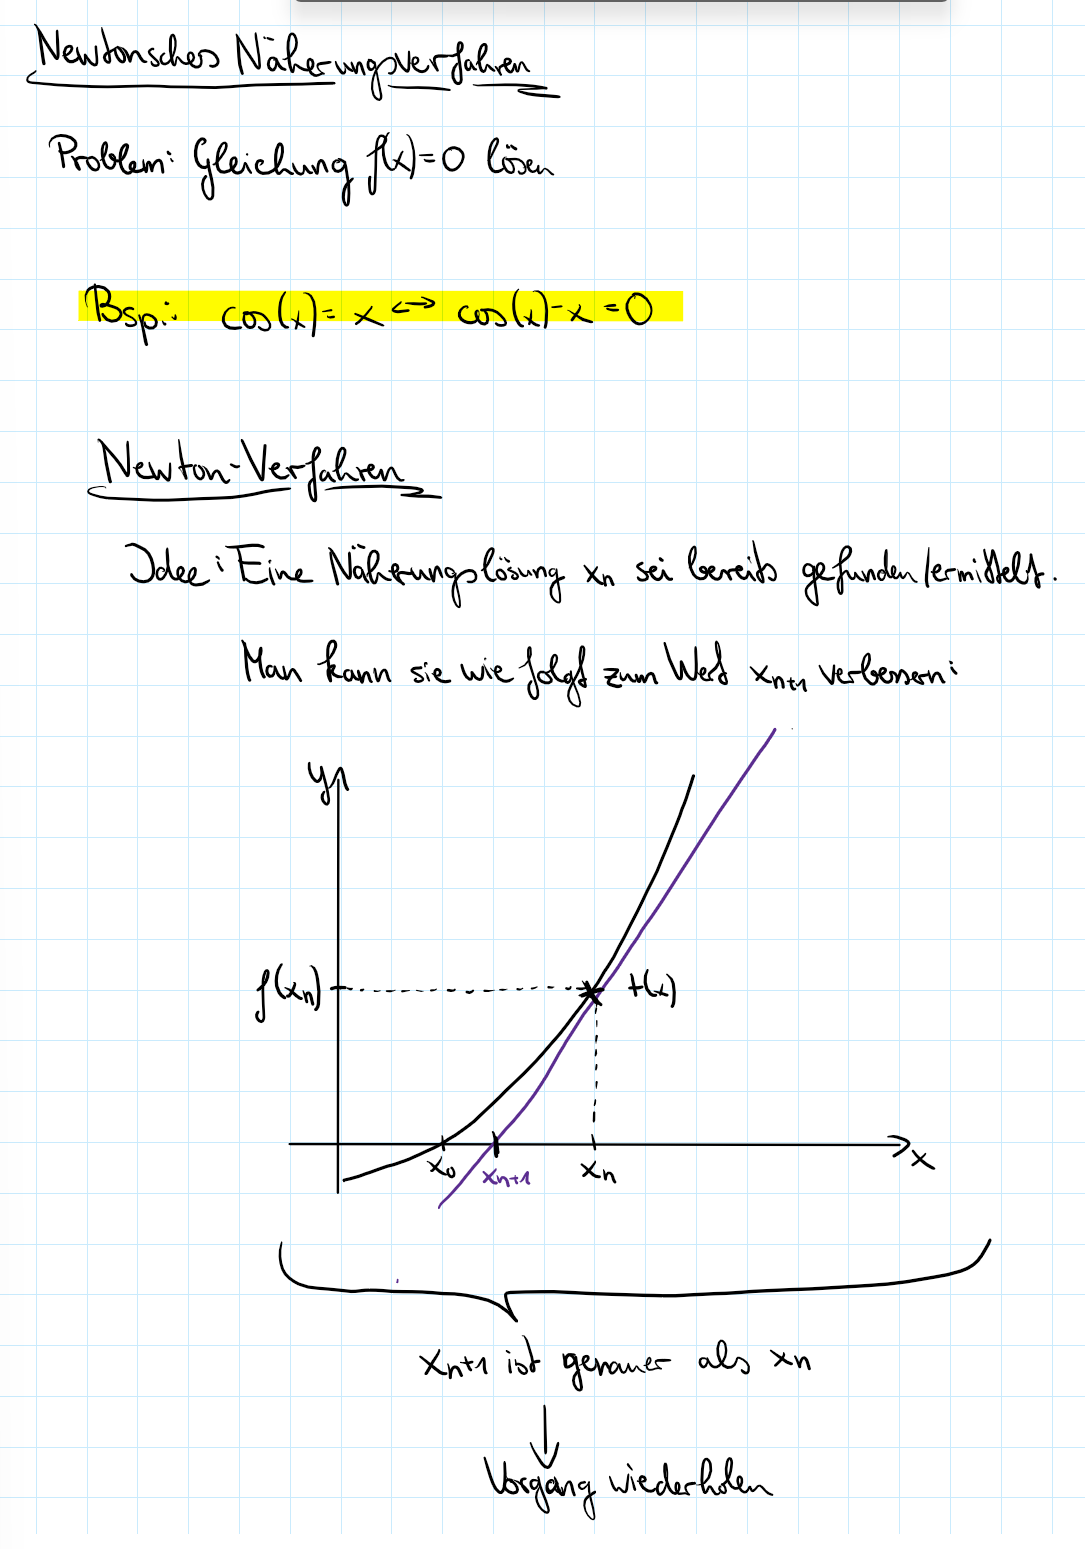 Newtonsches Näherungsverfahren
Problem: Gleichung f(x)=0 lösen
Bsp.: cos(x)=x ↔ cos(x)-x=0
Newton-Verfahren
Idee: Eine Näherungslösung xn sei bereits gefunden/ermittelt.
Man kann sie wie folgt zum Wert xn+1 verbessern:
y
f(xn)
t(x)
x0
xn+1
xn
x
xn+1 ist genauer als xn
Vorgang wiederholen